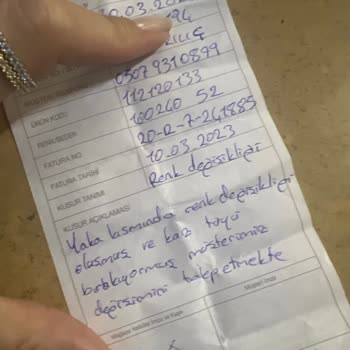 10.03.20
KILIÇ
05079310899
ÜRÜN KODU 112120133
RENK/BEDEN 160240 52
FATURA NO 20-2-7-241885
FATURA TARİHİ 10.03.2023
KUSUR TANIMI Renk değişikliği
KUSUR AÇIKLAMASI
Yaka kısmında renk değişikliği
oluşmuş ve kaz tüyü
batıyormuş müşterimiz
değişimini talep etmekte
Mağaza Yetkilisi İmza ve Kaşe Müşteri İmza